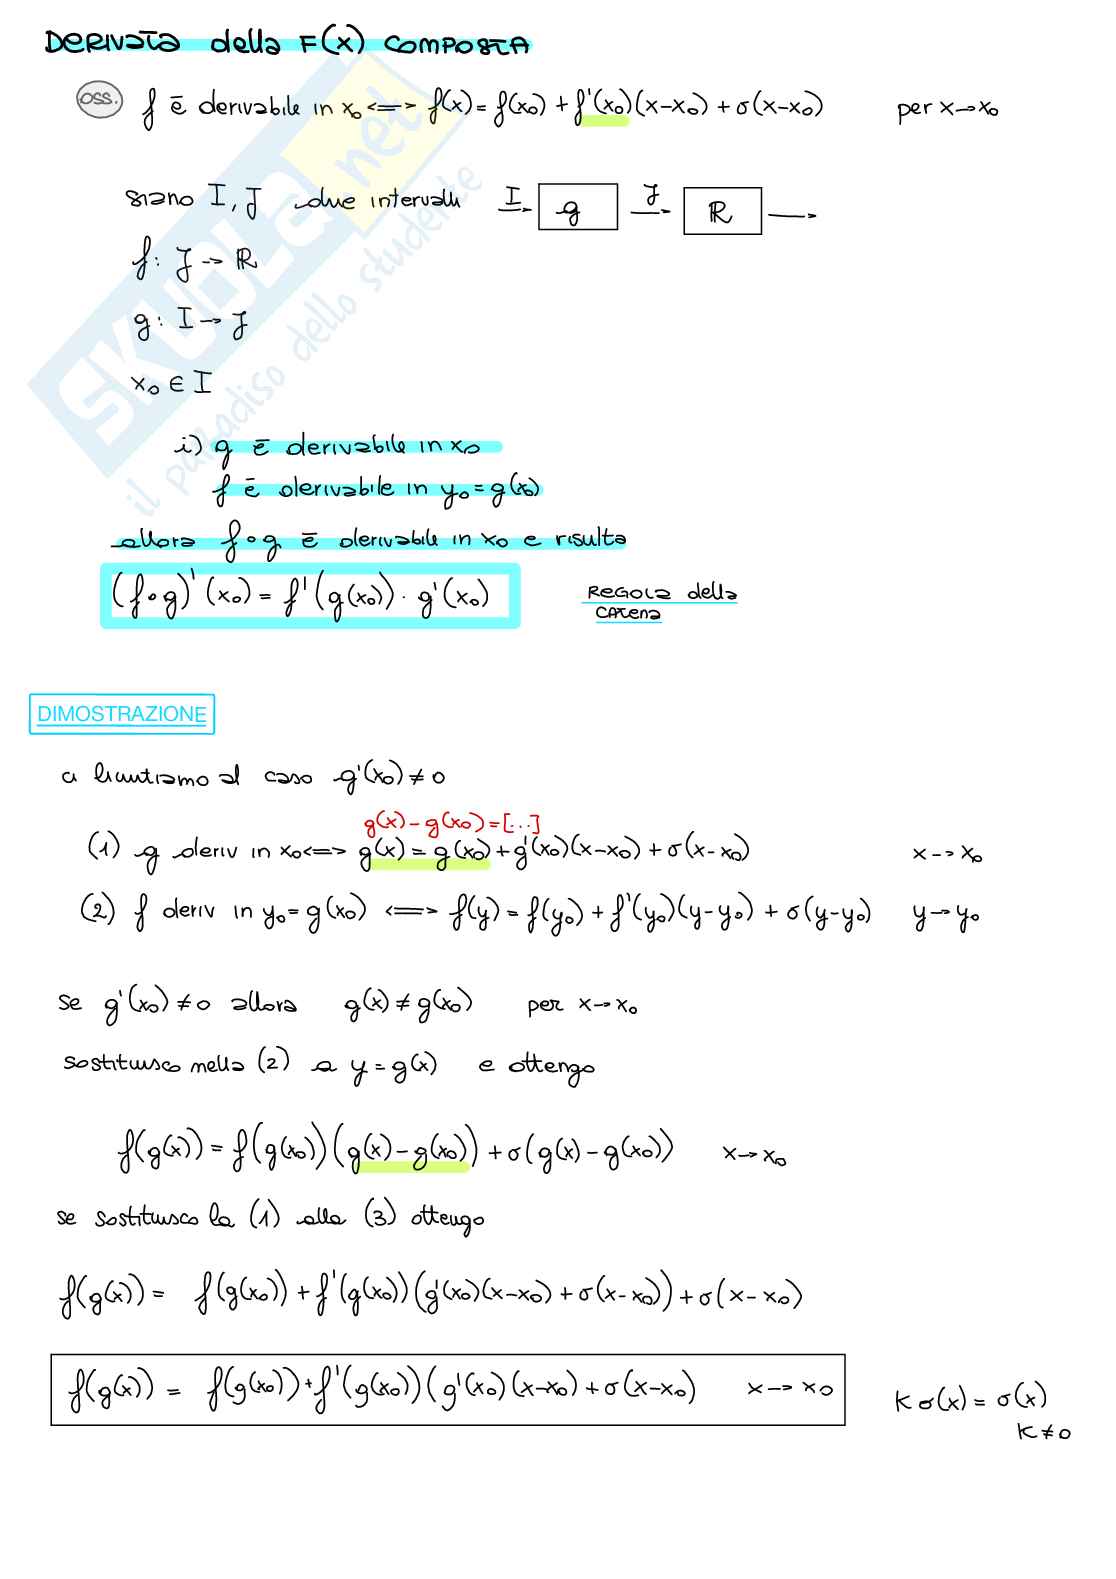 DERIVATA della F(x) COMPOSTA
OSS. f è derivabile in x₀ <=> f(x) = f(x₀) + f'(x₀)(x-x₀) + σ(x-x₀) per x→x₀
siano I, J due intervalli I→ g J→ ℝ →
f: J → ℝ
g: I → J
x₀ ∈ I
i) g è derivabile in x₀
f è derivabile in y₀ = g(x₀)
allora f∘g è derivabile in x₀ e risulta
(f∘g)'(x₀) = f'(g(x₀)) · g'(x₀) REGOLA della
CATENA
DIMOSTRAZIONE
ci limitiamo al caso g'(x₀) ≠ 0
g(x) - g(x₀) = [...]
(1) g deriv in x₀ <=> g(x) = g(x₀) + g'(x₀)(x-x₀) + σ(x-x₀) x→x₀
(2) f deriv in y₀ = g(x₀) <=> f(y) = f(y₀) + f'(y₀)(y-y₀) + σ(y-y₀) y→y₀
se g'(x₀) ≠ 0 allora g(x) ≠ g(x₀) per x→x₀
sostituisco nella (2) a y = g(x) e ottengo
f(g(x)) = f(g(x₀))(g(x) - g(x₀)) + σ(g(x) - g(x₀)) x→x₀
se sostituisco la (1) alla (3) ottengo
f(g(x)) = f(g(x₀)) + f'(g(x₀))(g'(x₀)(x-x₀) + σ(x-x₀)) + σ(x-x₀)
f(g(x)) = f(g(x₀)) + f'(g(x₀))(g'(x₀)(x-x₀) + σ(x-x₀) x→x₀
K σ(x) = σ(x)
K ≠ 0
SKUOLA.net
il paradiso dello studente